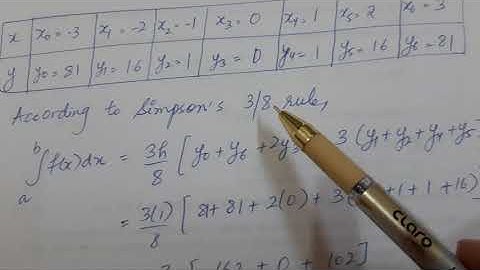 x x₀=-3 x₁=-2 x₂=-1 x₃=0 x₄=1 x₅=2 x₆=3
y y₀=81 y₁=16 y₂=1 y₃=0 y₄=1 y₅=16 y₆=81
According to Simpson's 3/8 rule,
∫ₐᵇ f(x)dx = 3h/8 [y₀+y₆+2y₃ 3(y₁+y₂+y₄+y₅)
= 3(1)/8 [81+81+2(0)+3( +1+1+16)]
[162+0+102]
claro